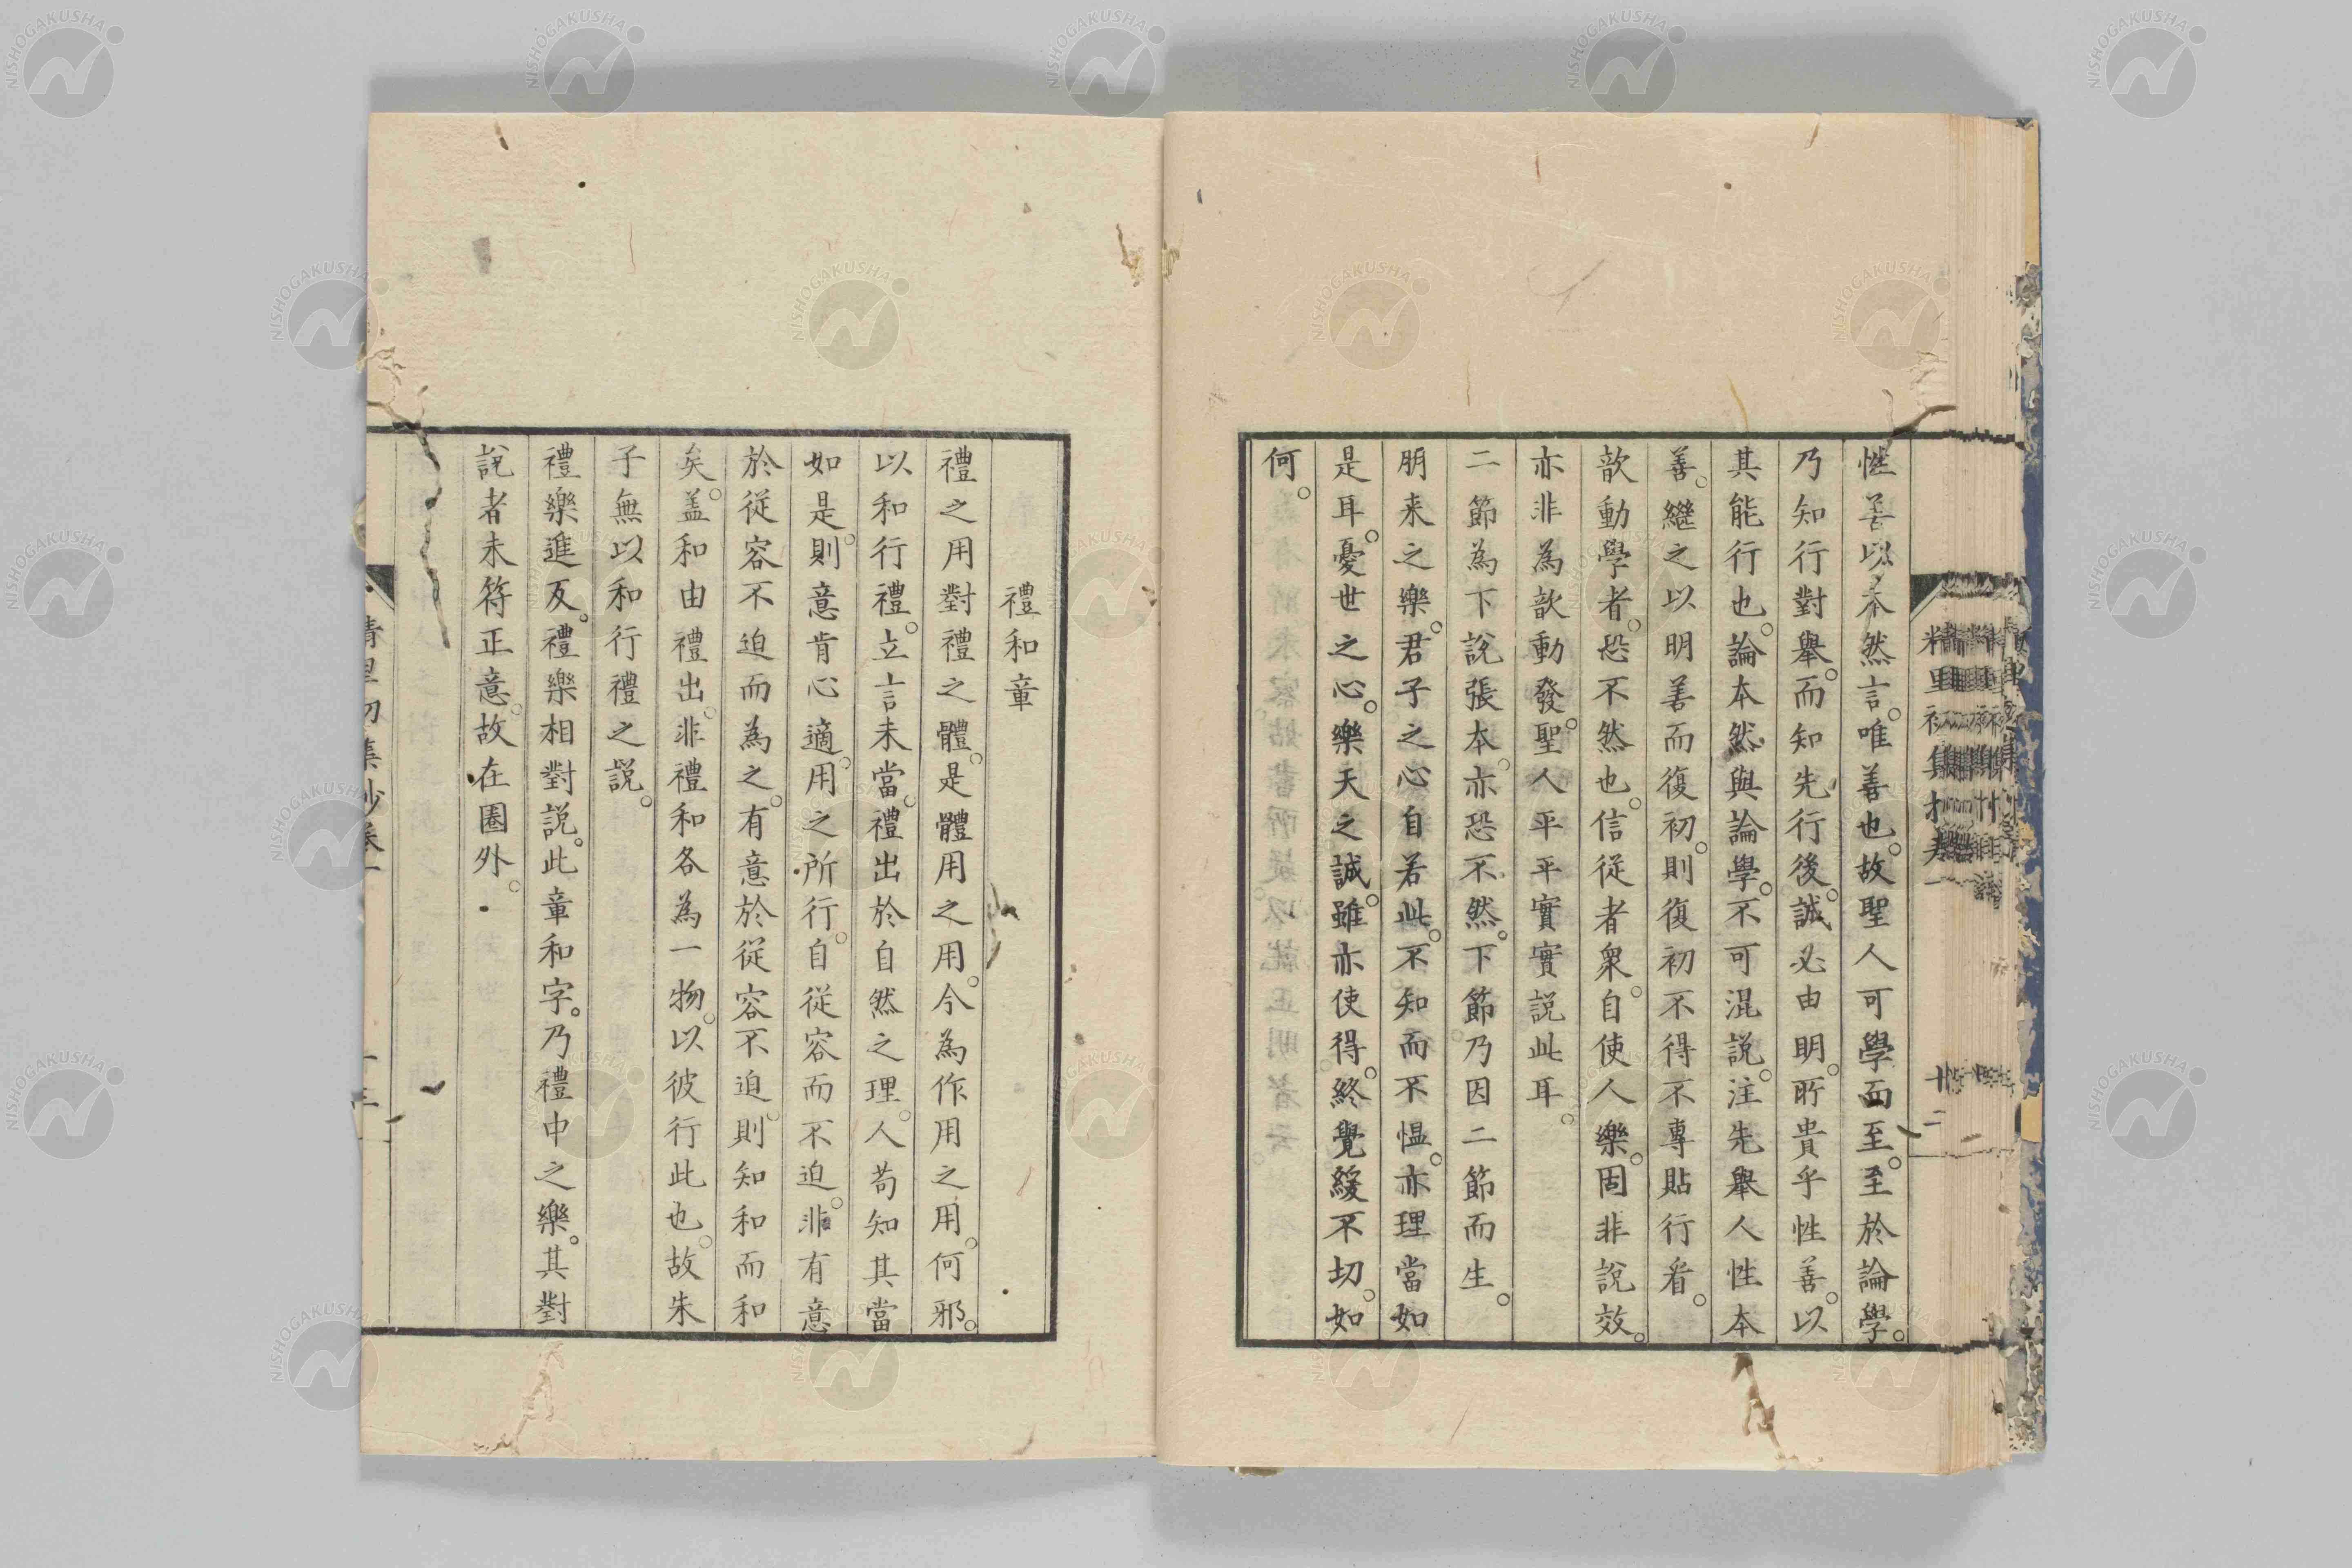 性善以本然言。唯善也。故聖人可學而至。至於論學。
乃知行對舉。而知先行後。誠必由明。所貴乎性善。以
其能行也。論本然與論學。不可混説。注先舉人性本
善。繼之以明善而復初。則復初不得不專貼行看。
歆動學者。恐不然也。信從者衆。自使人樂。固非説效。
亦非為歆動發。聖人平平實實説此耳。
二節為下説張本。亦恐不然。下節乃因二節而生。
朋来之樂。君子之心自若此。不知而不愠。亦理當如
是耳。憂世之心。樂天之誠。雖亦使得。終覺緩不切。如
何。
精里初集抄卷一
十二
禮和章
禮之用對禮之體。是體用之用。今為作用之用。何邪。
以和行禮。立言未當。禮出於自然之理。人苟知其當
如是。則意肯心適。用之所行。自從容而不迫。非有意
於從容不迫而為之。有意於從容不迫。則知和而和
矣。盖和由禮出。非禮和各為一物。以彼行此也。故朱
子無以和行禮之説。
禮樂進反。禮樂相對説。此章和字。乃禮中之樂。其對
説者未符正意。故在圏外。
精里初集抄卷一
NISHOGAKUSHA